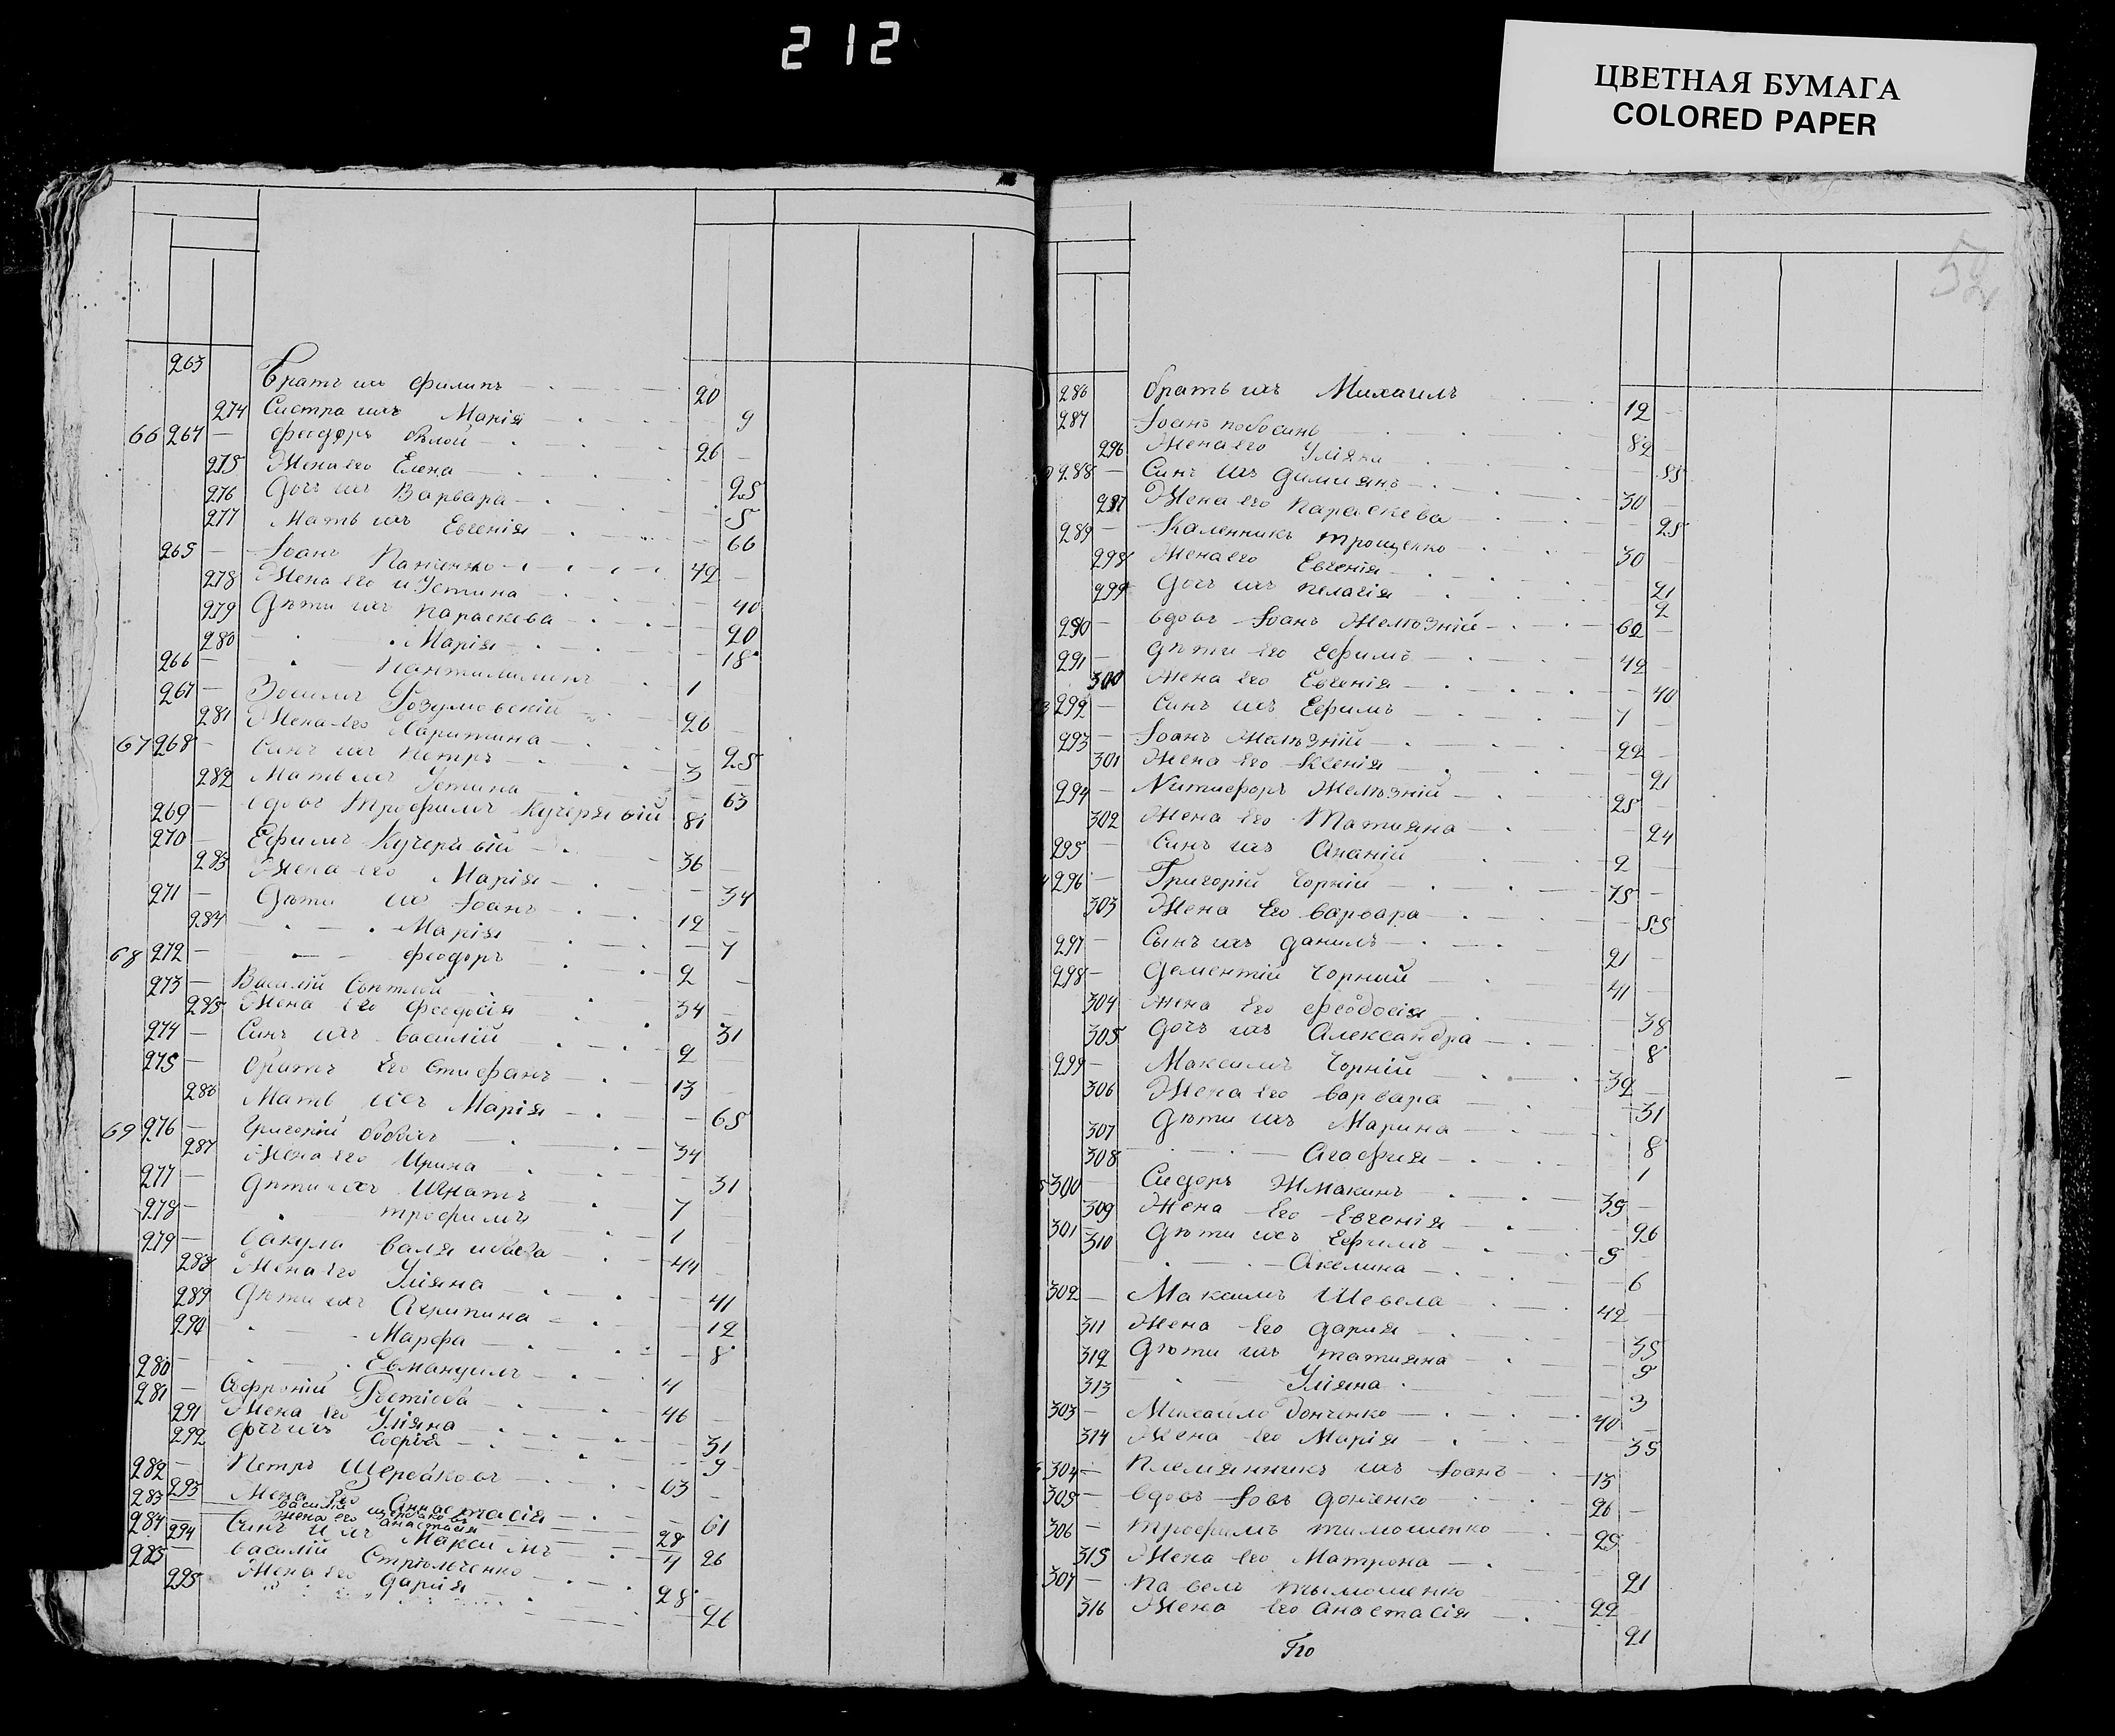 212
ЦВЕТНАЯ БУМАГА
COLORED PAPER
263 Братъ ихъ Филипъ 20
274 Систра ихъ Марія 9
66 264 Феодоръ Бѣлой 26
275 Жена его Елена 25
276 Дочь ихъ Варвара 5
277 Мать ихъ Евгенія 66
265 Іоанъ Панченко 42
278 Жена его Иустина 40
279 Дѣти ихъ Параскева 20
280 Марія 18
266 Пантилимонъ 1
267 Зосимъ Розумовскій 26
281 Жена его Харитина 25
67 268 Синъ ихъ Петръ 3
282 Мать ихъ Устина 63
269 вдовъ Трофимъ Кучерявій 81
270 Ефимъ Кучерявій 36
283 Жена его Марія 34
271 Дѣти ихъ Іоанъ 12
284 Марія 7
68 272 Феодоръ 2
273 Василій 34
285 Жена его Феодосія 31
274 Синъ ихъ Василій 2
275 Братъ его Стифанъ 13
286 Мать ихъ Марія 65
69 276 Григорій 34
287 Жена его Ирина 31
277 Дѣти ихъ Игнатъ 7
278 Трофимъ 1
279 Вакула 44
288 Жена его Уліяна 41
289 Дѣти ихъ Агрипина 12
290 Марфа 8
280 Евмануилъ 4
281 Софроній 46
291 Жена его Уліяна 31
292 Дочь ихъ Софія 9
282 Петръ Щербаковъ 63
293 Жена его Аннастасія 61
283 Василій Щербаковъ 28
294 Жена его Анастасія 26
284 Синъ ихъ Максимъ 4
285 Василій Стрѣльченко 28
295 Жена его Дарія 26
52
286 Братъ ихъ Михаилъ 12
287 Іоанъ 82
296 Жена его Уліяна 55
288 Синъ ихъ Димиянъ 30
297 Жена его Параскева 25
289 Каленникъ Трощенко 30
298 Жена его Евгенія 21
299 Дочь ихъ Пелагія 2
290 вдовъ Іоанъ Желѣзній 62
291 Дѣти его Ефимъ 42
300 Жена его Евгенія 40
292 Синъ ихъ Ефимъ 7
293 Іоанъ Желѣзній 22
301 Жена его Ксенія 21
294 Никифоръ Желѣзній 25
302 Жена его Татияна 24
295 Синъ ихъ Ананій 2
296 Григорій Чорній 75
303 Жена его Варвара 55
297 Сынъ ихъ Данилъ 21
298 Дементій Чорній 41
304 Жена его Феодосія 38
305 Дочь ихъ Александра 8
299 Максимъ Чорній 32
306 Жена его Варвара 31
307 Дѣти ихъ Марина 8
308 Агафия 1
300 Сидоръ Жмакинъ 35
309 Жена его Евгенія 26
301 Дѣти ихъ Ефимъ 9
310 Акелина 6
302 Максимъ Шевела 42
311 Жена его Дария 35
312 Дѣти ихъ Татияна 9
313 Уліяна 3
303 Михайло Донченко 40
314 Жена его Марія 35
304 Племянникъ ихъ Іоанъ 13
305 вдовъ Іовъ Донченко 26
306 Трофимъ Тимошенко 25
315 Жена его Матрона 21
307 Павелъ Тымошенко 22
316 Жена его Анастасія 21